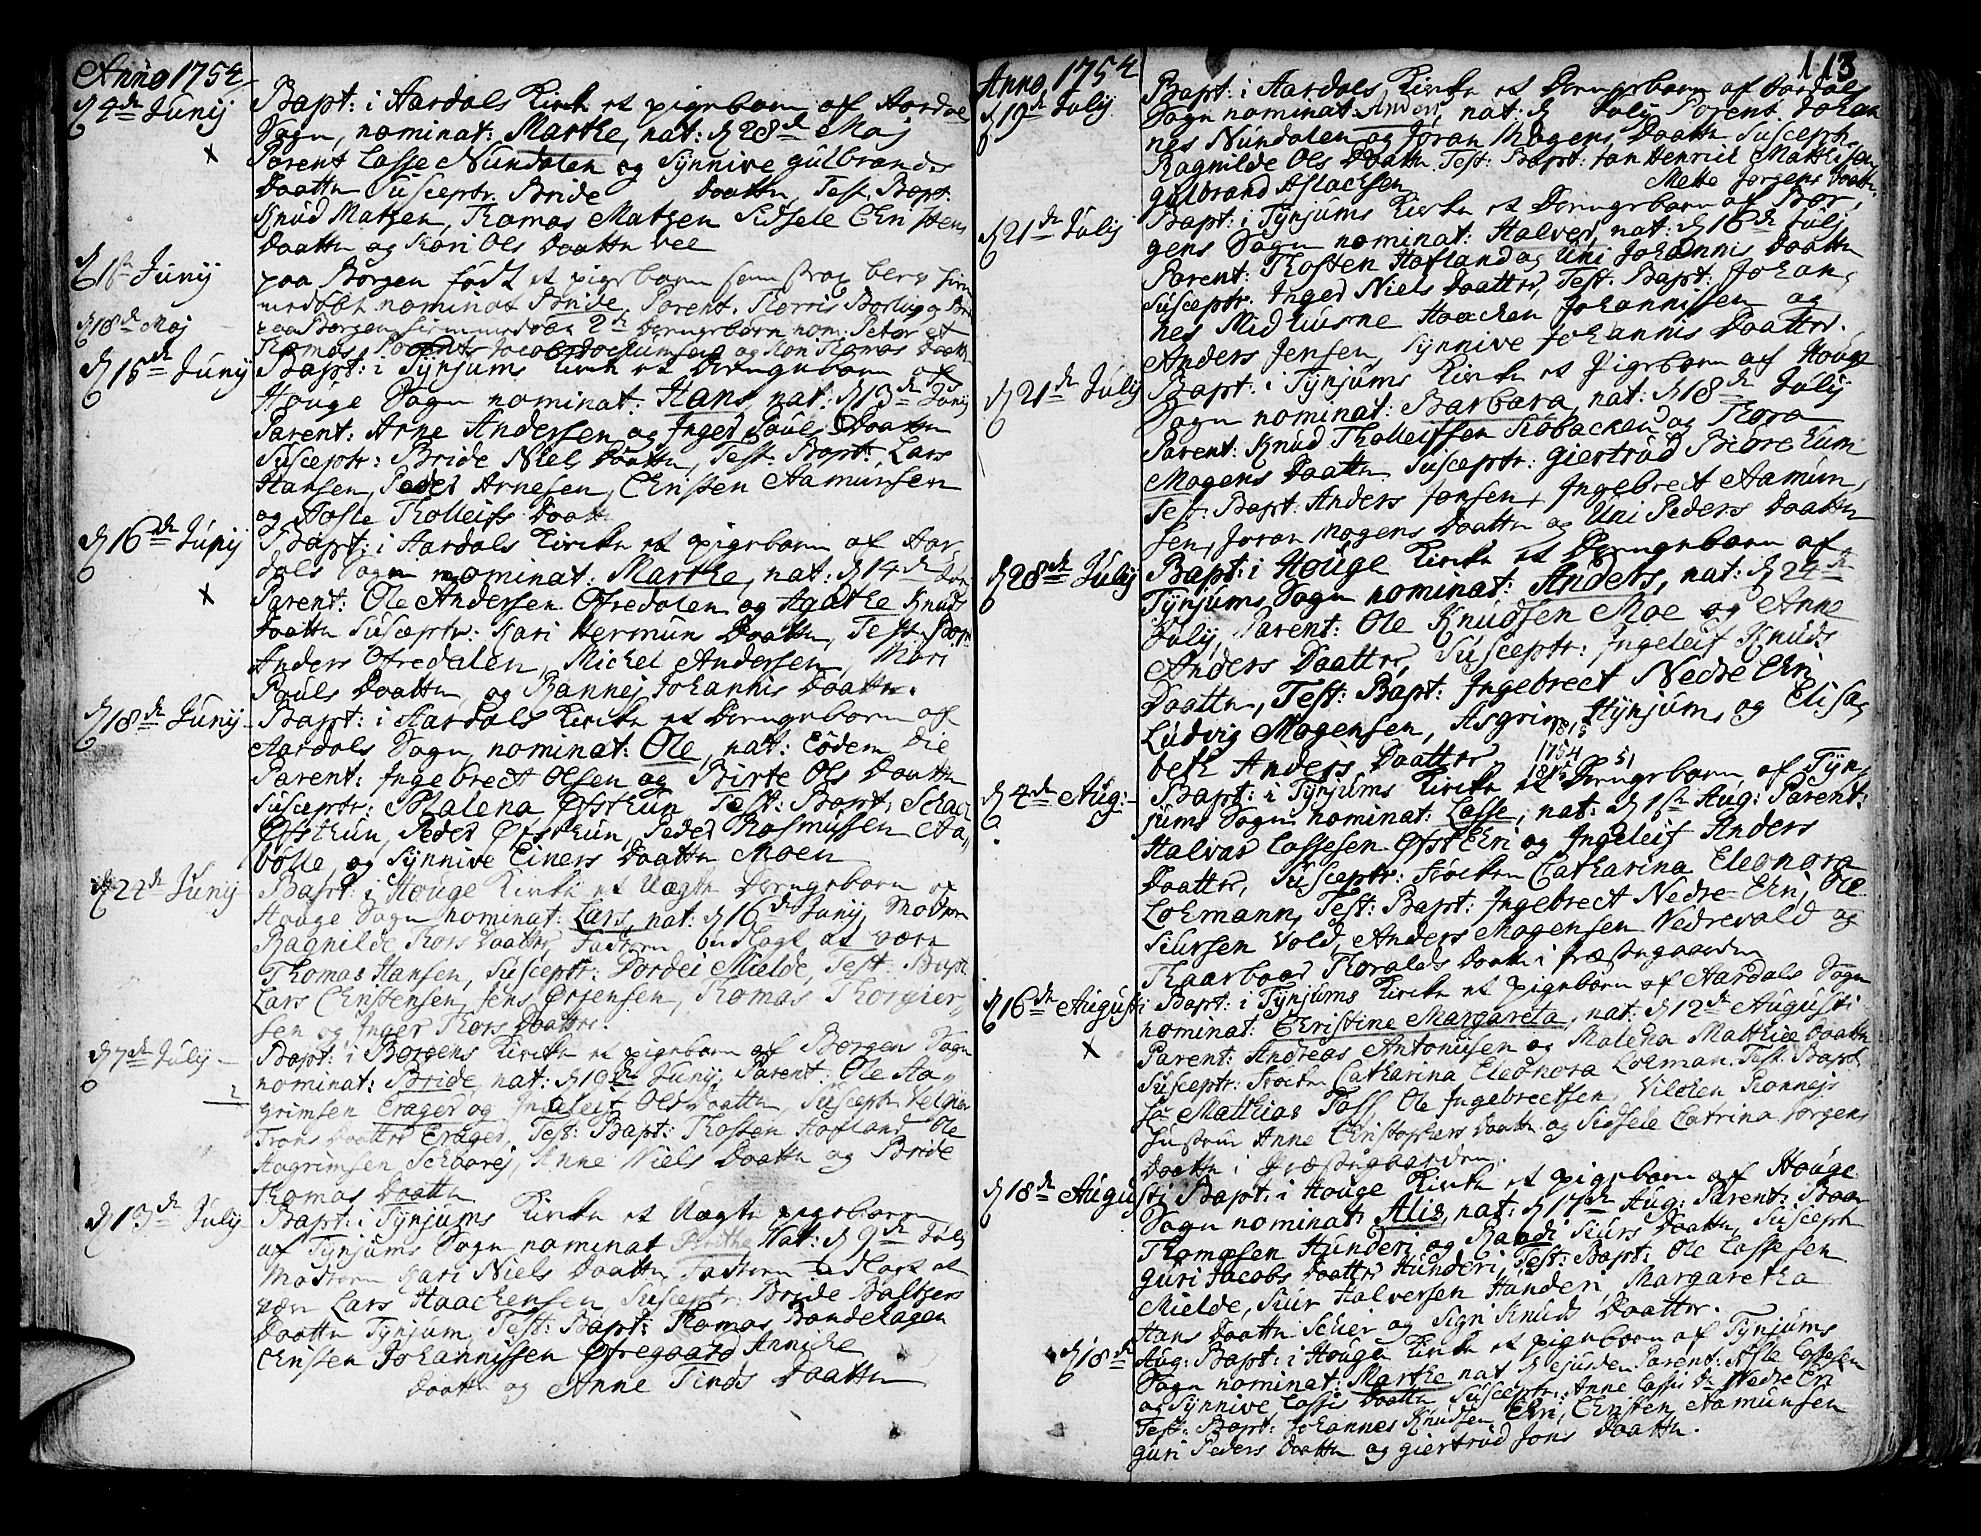 Anno 1754
d 4de Junij
Bapt: i Aardals Kirke et pigebarn af Aardal
Sogn, nominat: Marthe, nat: d 28de Maj
Parent Lasse Nundalen og Synnive gulbrands
Daatter Susceptr. Bride Daatter, Test. Bapt.
Knud Matzen, Thomas Matzen Sidsele Christens
Daatter og Kari Ols Daatter vee
d 1ste Junij
paa Borgen født et pigebarn som strax blev hiem
nominat Bride, Parent.
d 18de Maj
2de Drengebørn nom: Peter et
Thomas, Parents Jacob og Kari Thomas Daatter
d 16de Junij
Bapt: i Tynjums Kirke et Drengebarn af
Houge Sogn nominat. Hans, nat: d 13de Junij
Parent: Arne Andersen og Inger Pouls Daatter
Susceptr: Bride Niels Daatter, Test. Bapt: Lars
Hansen, Peder Arnesen, Christen Aamunsen
og Aoste Tholleifs Daatter
d 16de Junij
Bapt: i Aardals Kirke et pigebarn af Aar
dals Sogn nominat: Marthe, nat: d 14de Jun
Parent: Ole Andersen Ofredalen og Agathe Knuds
Daatter Susceptr: Kari Hermuns Daatter, Test. Bapt.
Anders Ofredalen, Michel Andersen, Mari
Pouls Daatter, og Rannej Johannis Daatter.
d 18de Junij
Bapt: i Aardals Kirke et Drengebarn af
Aardals Sogn nominat: Ole, nat: Eodem Die
Parent: Ingebrect Olsen og Birte Ols Daatter
Susceptr: Malena Øfsthun Test: Bapt: Schack
Øfsthun, Peder Øfsthun, Peder Rasmussen Aa,
bølle, og Synnive Einers Daatter Moen
d 24de Junij
Bapt: i Houge Kirke et Uægte Drengebarn af
Houge Sogn nominat: Lars, nat: d 16de Junij Modren
Ragnilde Thors Daatter, Fadren udlagt at være
Thomas Hansen, Susceptr: Dordei Mielde, Test: Bapt
Lars Christensen, Jens Ørjensen, Thomas Thorgier,
sen og Inger Thors Daatter.
d 7de Julij
Bapt: i Borgens Kirke et pigebarn af Borgens Sogn
nominat: Bride, nat: d 10de Junij Parent: Ole Aa,
grimsen Erager, og Ingeleif Ols Daatter, Suscept: Velgier
Trons Daatter Erager, Test: Bapt: Thosten Hafland Ole
Aagrimsen Schaarej, Anne Niels Daatter og Bride
Thomas Daatter
d 13de Julij
Bapt: i Tynjums Kirke et Uægte pigebarn
af Tynjums Sogn nominat Brithe Nat: d 9de Julij
Modren Kari Niels Daatter, Fadren udlagt at
være Lars Haachensen, Susceptr: Bride Baltzers
Daatter Tynjum, Test: Bapt: Thomas Bondelagen
Christen Johannissen Øfregaard Anniche
Daatter og Anne Tinds Daatter
113
Anno 1754
d 19de Julij
Bapt: i Aardals Kirke et Drengebarn af Aardals
Sogn nominat: Anders, nat: d Julij Parent Johan
nes Nundalen og Joran Mogens Daatter Suscept:
Ragnilde Ols Daatter Test: Bapt: Jan Henrich Mathisen
Gulbrand Aslachsen Mette Jørgens Daatter
d 21de Julij
Bapt: i Tynjums Kirke et Drengebarn af Bor,
gens Sogn nominat: Halver, nat: d 16de Julij
Parent: Thosten Hafland og Uni Johannis Daatter
Susceptr. Inger Niels Daatter, Test. Bapt: Johan,
nes Midhusne Haachen Johannissen og
Anders Jensen, Synnive Johannis Daatter.
d 21de Julij
Bapt: i Tynjums Kirke et Pigebarn af Houge
Sogn nominat: Barbara, nat: d 18de Julij
Parent: Knud Tholleifsen Købacken og Thora
Mogens Daatter Susceptr: Giertrud Bibrehum
Test: Bapt. Anders Jonsen, Ingebrect Aamun,
sen, Joran Mogens Daatter og Uni Peders Daatter
d 28de Julij
Bapt: i Houge Kirke et Drengebarn af
Tynjums Sogn nominat: Anders, nat: d 24de
Julij, Parent: Ole Knudsen Moe og Anne
Anders Daatter, Susceptr: Ingeleif Knuds
Daatter, Test: Bapt: Ingebrect Nedre Eri
Ludvig Mogensen, Asgrim Hynjum, og Elisa,
beth Anders Daatter
1815
1754
d 4de Aug:
Bapt: i Tynjums Kirke et Drengebarn af Tyn,
jums Sogn nominat: Lasse, nat: d 1ste Aug: Parent:
Halvar Lassesen Øfst Eri og Ingeleif Anders
Daatter, Susceptr: Frøcken Catharina Eleonora
Lohmann, Test: Bapt: Ingebrect Nedre-Eri, Ole
Siursen Vold, Anders Mogensen Nedrevold og
Thaarboar Thoralds Daatter i præstegaarden
d 16de Augusti
Bapt: i Tynjums Kirke et pigebarn af Aardals Sogn
nominat: Christine Margareta, nat: d 12de Augusti
Parent: Andreas Antoniisen og Malena Matthiæ Daatter
Susceptr: Frøcken Catharina Eleonora Lohman. Test: Bapt
Matthias Foss, Ole Ingebrectsen, Vilchen Rønnejs
Anne Christophers Daatter og Sidsele Catrina Jørgens
Daatter i Præstegaarden.
d 18de Augusti
Bapt: i Houge Kirke et pigebarn af Houge
Sogn nominat: Alis, nat: d 17de Aug: Parent: Boar
Thomesen Hunderi og Raadi Siurs Daatter, Suscept
Guri Jacobs Daatter Hunderi, Test: Bapt: Ole Lassesen
Mielde, Siur Halversen Hunderi, Margaretha
Hans Daatter Scheer og Sigri Knuds Daatter.
d 18de
Aug: Bapt: i Houge Kirke et pigebarn af Tynjums
Sogn nominat: Marthe nat d ejusdem Parent: Asle Lassesen
og Synnive Lassis Daatter Susceptr: Anne Lassis Dr Nedre Eri
Test: Bapt: Johannes Knudsen Eri, Christen Aamunsen
Guri Peders Daatter og Giertrud Jons Daatter.